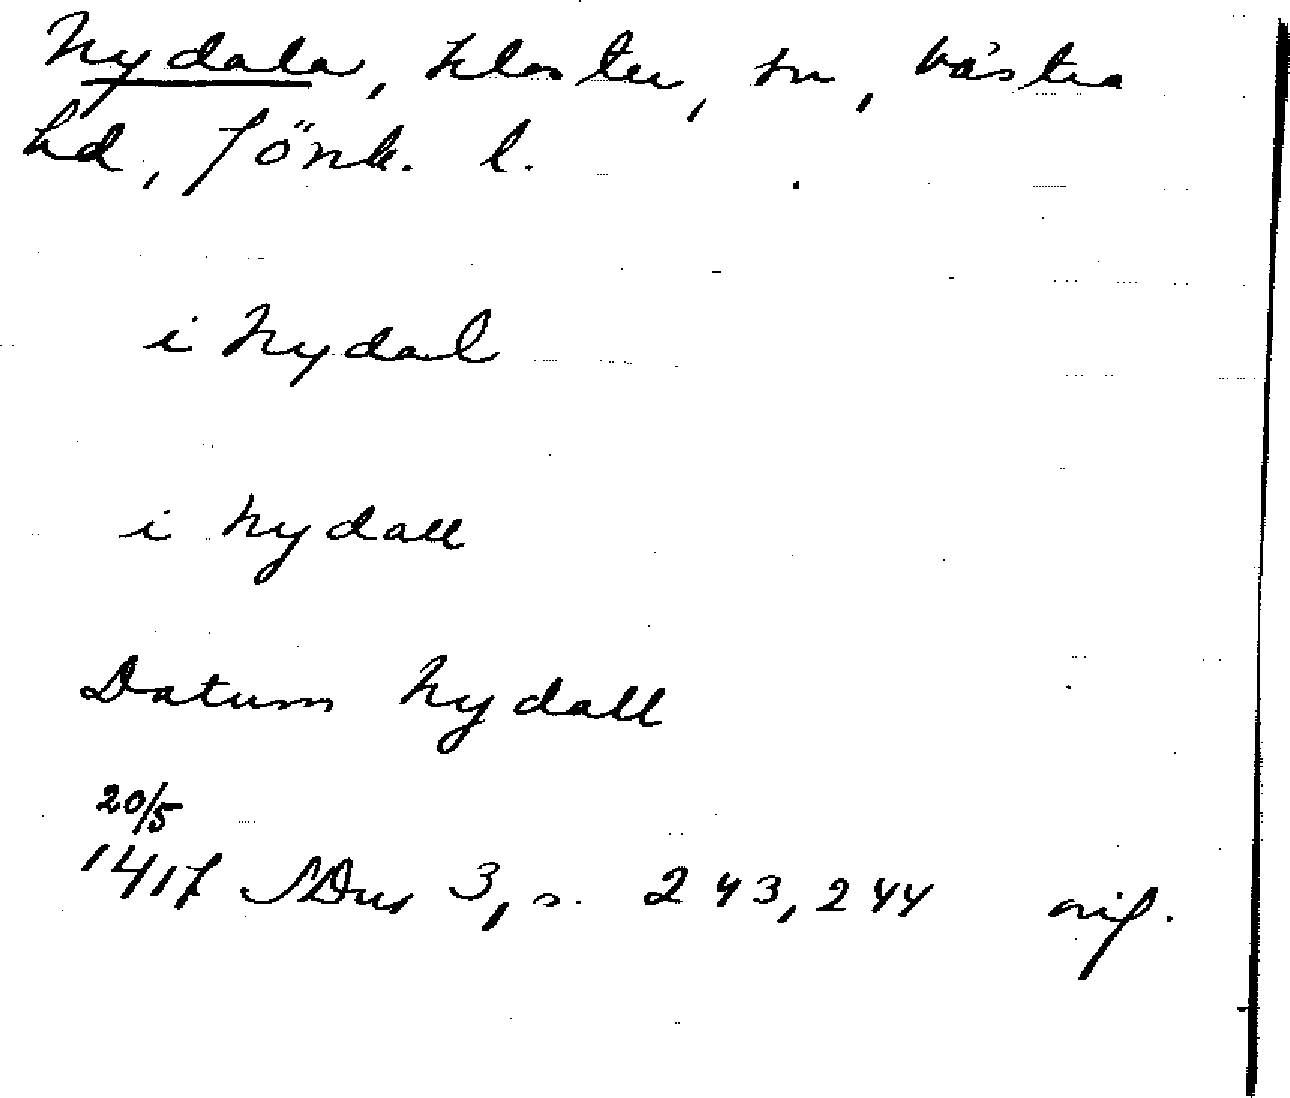 Nydala, kloster, sn, västra
hd, Jönk. l.
i Nydal
i Nydall
Datum Nydall
20/5
1417 SDns 3, s. 243, 244 orig.